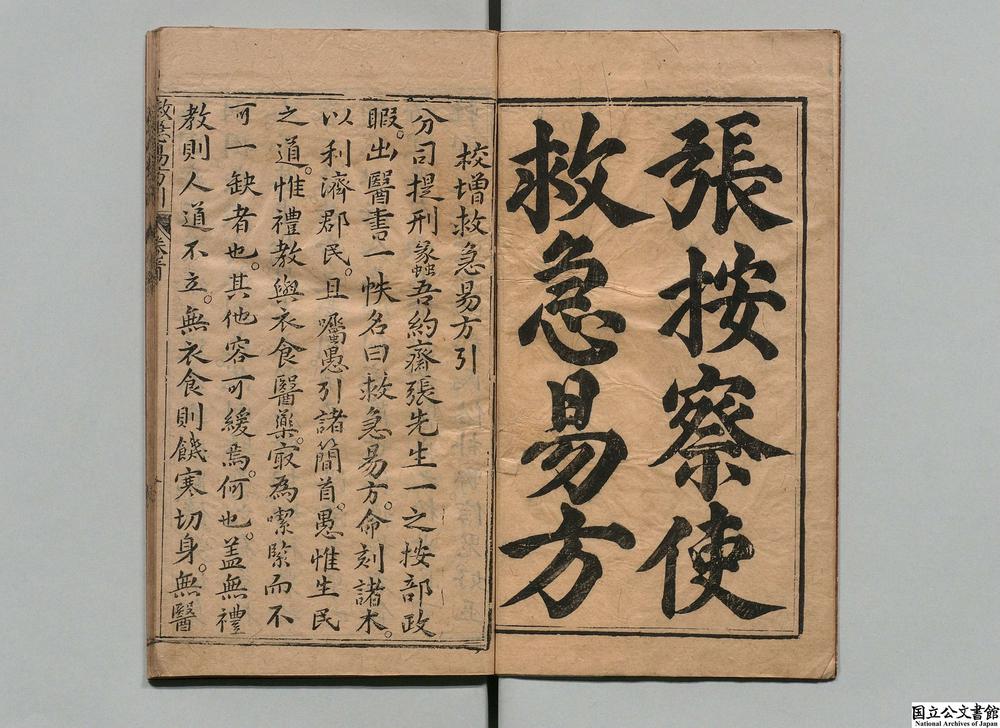 張按察使
救急易方
校增救急易方引
分司提刑彖蟲吾約齋張先生一之按部政
暇。出醫書一帙名曰救急易方。命刻諸木。
以利濟郡民。且囑愚引諸簡首。愚惟生民
之道。惟禮教與衣食醫藥。㝡為喫緊而不
可一缺者也。其他容可緩焉。何也。盖無禮
教則人道不立。無衣食則饑寒切身。無醫
救急易方引
国立公文書館
National Archives of Japan